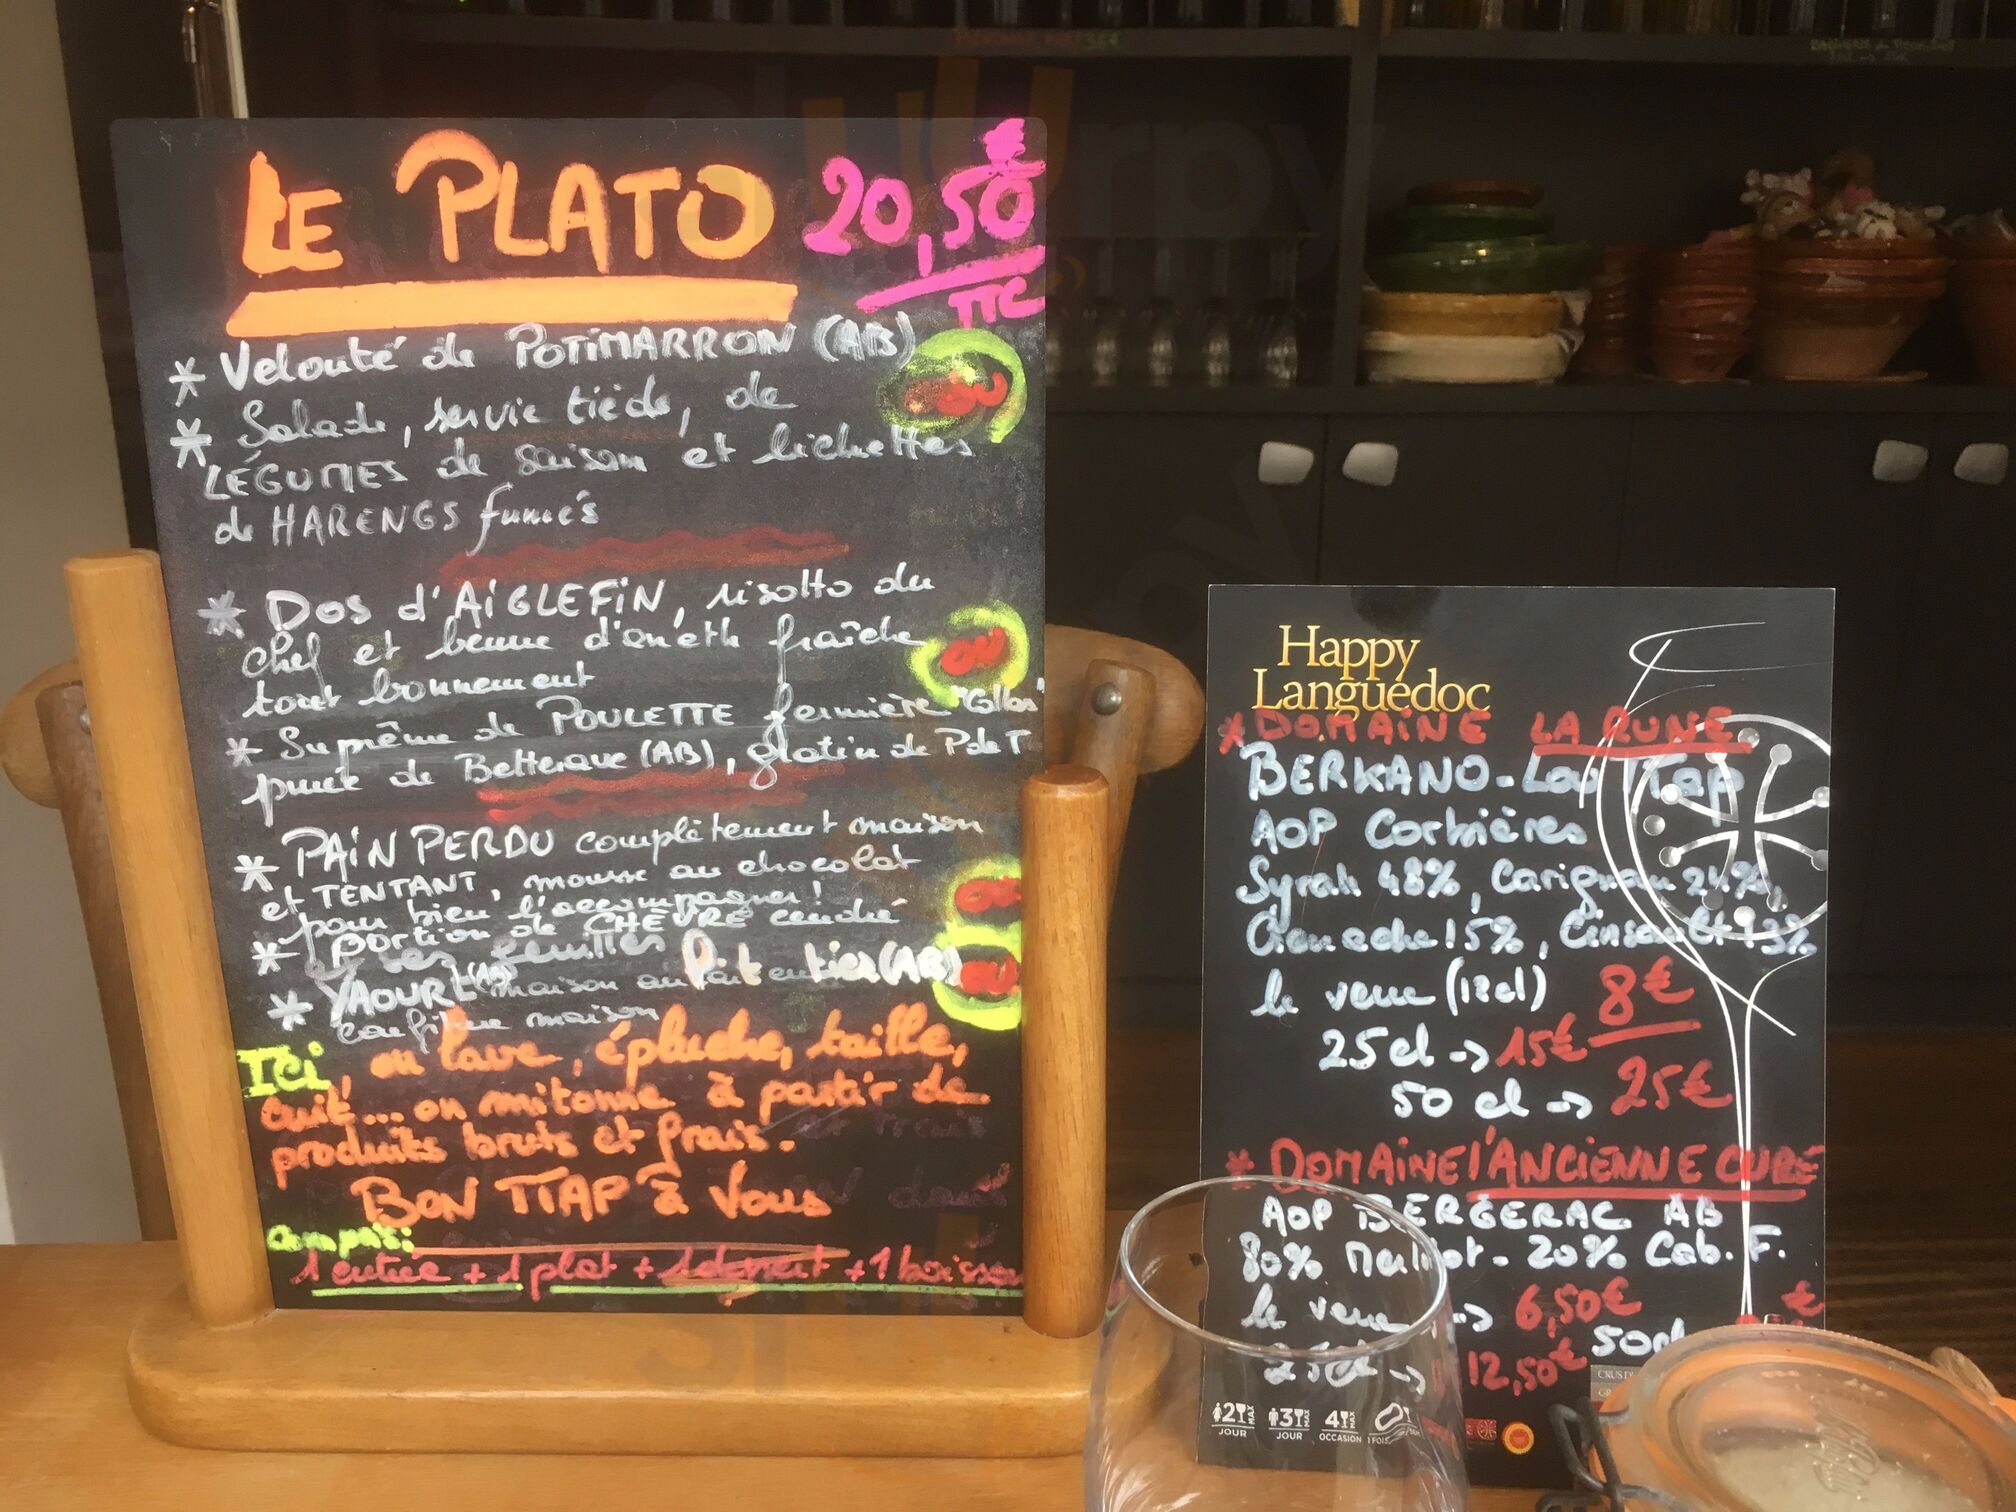 LE PLATO 20,50 €
TTC
* Velouté de POTIMARRON (AB)
ou
* Salade, servie tiède, de
LÉGUMES de saison et lichettes
de HARENGS fumés
* DOS d'AiGLEFiN, risotto du
chef et beurre d'aneth fraîche
tout bonnement
ou
* Suprême de POULETTE fermière
purée de Betterave (AB), gratin de P de T
* PAiN PERDU complètement maison
et TENTANT, mousse au chocolat
pour bien l'accompagner!
ou
* portion de CHÈVRE cendré
feuilles
ou
* YAOURT maison au lait entier (AB)
confiture maison
Ici, on lave, épluche, taille,
cuit... on mitonne à partir de
produits bruts et frais.
BON TTAP à Vous
1 entrée + 1 plat + 1 dessert + 1 boisson
Happy
Languedoc
* DOMAiNE LA RUNE
BERKANO - Lou Tap
AOP Corbières
Syrah 48%, Carignan 24%,
Grenache 15%, Cinsault 13%
le verre (12cl) 8€
25 cl -> 15€
50 cl -> 25€
* DOMAiNE l'ANCiENNE CURE
AOP BERGERAC AB
80% Merlot - 20% Cab. F.
le verre -> 6,50€
25cl -> 12,50€ 50cl
2 MAX JOUR
3 MAX JOUR
4 MAX OCCASION
1 FOIS